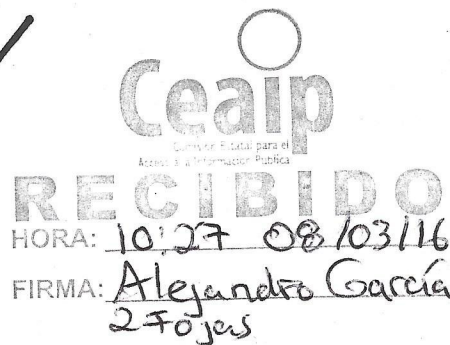 Ceaip
Comisión Estatal para el
Acceso a la Información Pública
RECIBIDO
HORA: 10:27 08/03/16
FIRMA: Alejandro García
2 Fojas